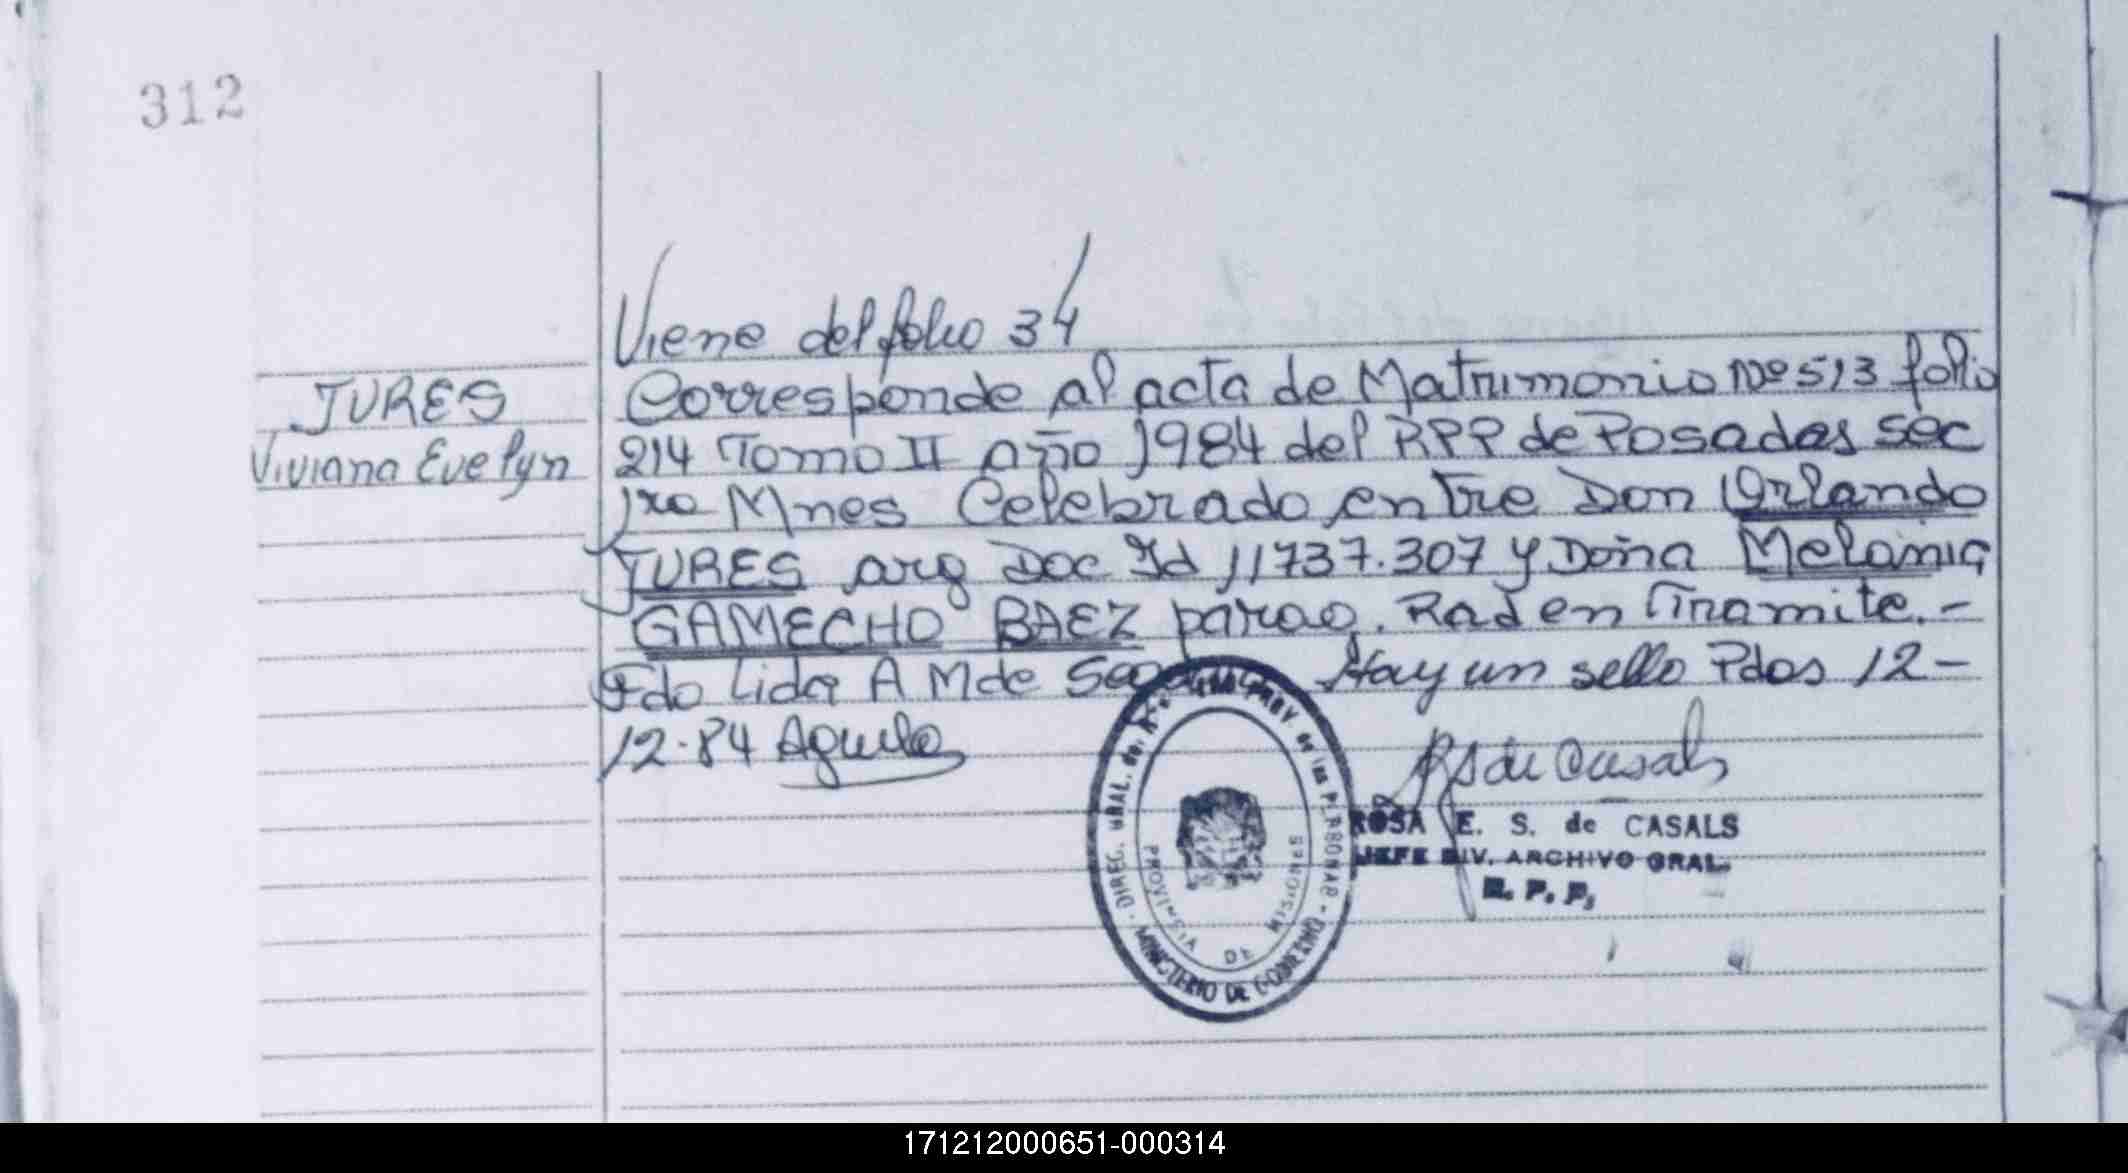 312
Viene del folio 34
JURES
Viviana Evelyn
Corresponde al acta de Matrimonio Nº 513 folio
214 Tomo II año 1984 del RPP de Posadas sec
1ra Mnes Celebrado entre Don Orlando
JURES arg Doc Id 11737.307 y Doña Melania
GAMECHO BAEZ parag. Rad en Tramite.-
Fdo Lida A M de Hay un sello Pdas 12-
12-84 Aguilo
RS de Casals
ROSA E. S. de CASALS
JEFE DIV. ARCHIVO GRAL.
R. P. P.
DIREC. GRAL. del PROV de las PERSONAS - MINISTERIO DE GOBIERNO
PROVINCIA DE MISIONES
171212000651-000314